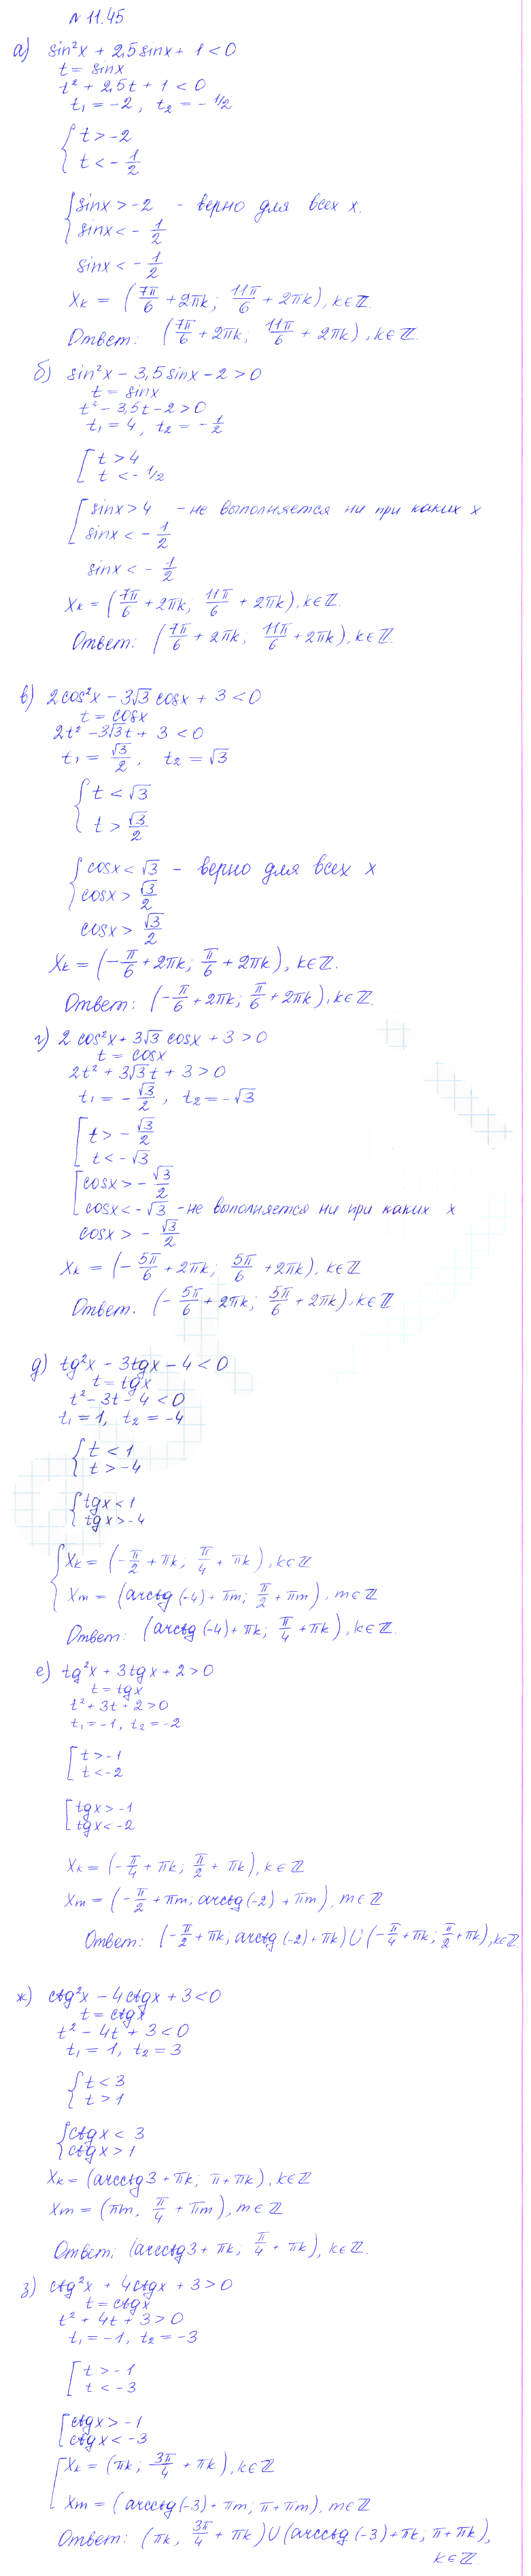 № 11.45
а) sin²x + 2,5 sinx + 1 < 0
t = sinx
t² + 2,5t + 1 < 0
t₁ = -2, t₂ = -1/2
{ t > -2
t < -1/2
{ sinx > -2 - верно для всех x.
sinx < -1/2
sinx < -1/2
Xk = (7π/6 + 2πk; 11π/6 + 2πk), k∈ℤ.
Ответ: (7π/6 + 2πk; 11π/6 + 2πk), k∈ℤ.
б) sin²x - 3,5 sinx - 2 > 0
t = sinx
t² - 3,5t - 2 > 0
t₁ = 4, t₂ = -1/2
[ t > 4
t < -1/2
[ sinx > 4 - не выполняется ни при каких x
sinx < -1/2
sinx < -1/2
Xk = (7π/6 + 2πk; 11π/6 + 2πk), k∈ℤ.
Ответ: (7π/6 + 2πk, 11π/6 + 2πk), k∈ℤ.
в) 2cos²x - 3√3 cosx + 3 < 0
t = cosx
2t² - 3√3t + 3 < 0
t₁ = √3/2, t₂ = √3
{ t < √3
t > √3/2
{ cosx < √3 - верно для всех x
cosx > √3/2
cosx > √3/2
Xk = (-π/6 + 2πk; π/6 + 2πk), k∈ℤ.
Ответ: (-π/6 + 2πk; π/6 + 2πk), k∈ℤ.
г) 2 cos²x + 3√3 cosx + 3 > 0
t = cosx
2t² + 3√3 t + 3 > 0
t₁ = -√3/2, t₂ = -√3
[ t > -√3/2
t < -√3
[ cosx > -√3/2
cosx < -√3 - не выполняется ни при каких x
cosx > -√3/2
Xk = (-5π/6 + 2πk; 5π/6 + 2πk), k∈ℤ
Ответ. (-5π/6 + 2πk; 5π/6 + 2πk), k∈ℤ
д) tg²x - 3tgx - 4 < 0
t = tgx
t² - 3t - 4 < 0
t₁ = 1, t₂ = -4
{ t < 1
t > -4
{ tgx < 1
tgx > -4
{ Xk = (-π/2 + πk; π/4 + πk), k∈ℤ
Xm = (arctg(-4) + πm; π/2 + πm), m∈ℤ
Ответ: (arctg(-4) + πk; π/4 + πk), k∈ℤ.
е) tg²x + 3tgx + 2 > 0
t = tgx
t² + 3t + 2 > 0
t₁ = -1, t₂ = -2
[ t > -1
t < -2
[ tgx > -1
tgx < -2
Xk = (-π/4 + πk; π/2 + πk), k∈ℤ
Xm = (-π/2 + πm, arctg(-2) + πm), m∈ℤ
Ответ: (-π/2 + πk; arctg(-2) + πk) ∪ (-π/4 + πk; π/2 + πk), k∈ℤ.
ж) ctg²x - 4ctgx + 3 < 0
t = ctgx
t² - 4t + 3 < 0
t₁ = 1, t₂ = 3
{ t < 3
t > 1
{ ctgx < 3
ctgx > 1
Xk = (arcctg3 + πk; π + πk), k∈ℤ
Xm = (πm, π/4 + πm), m∈ℤ
Ответ: (arcctg3 + πk; π/4 + πk), k∈ℤ.
з) ctg²x + 4ctgx + 3 > 0
t = ctgx
t² + 4t + 3 > 0
t₁ = -1, t₂ = -3
[ t > -1
t < -3
[ ctgx > -1
ctgx < -3
[ Xk = (πk; 3π/4 + πk), k∈ℤ
Xm = (arcctg(-3) + πm; π + πm), m∈ℤ
Ответ: (πk, 3π/4 + πk) ∪ (arcctg(-3) + πk; π + πk),
k∈ℤ.